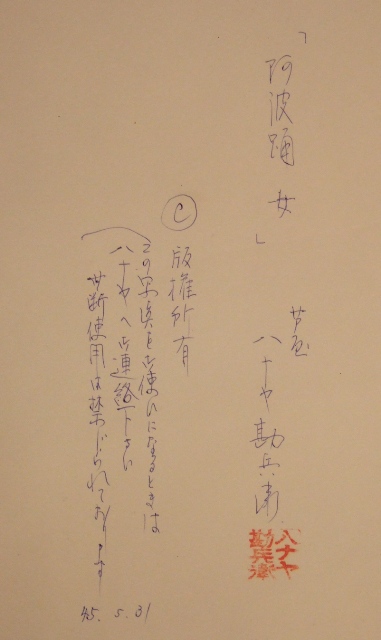 「阿波踊 女」
芦屋
ハナヤ勘兵衛
ハナヤ
勘兵衛
Ⓒ 版権所有
(この写真を御使ひになるときは
ハナヤへ御連絡下さい
無断使用は禁じられております
45. 5. 31